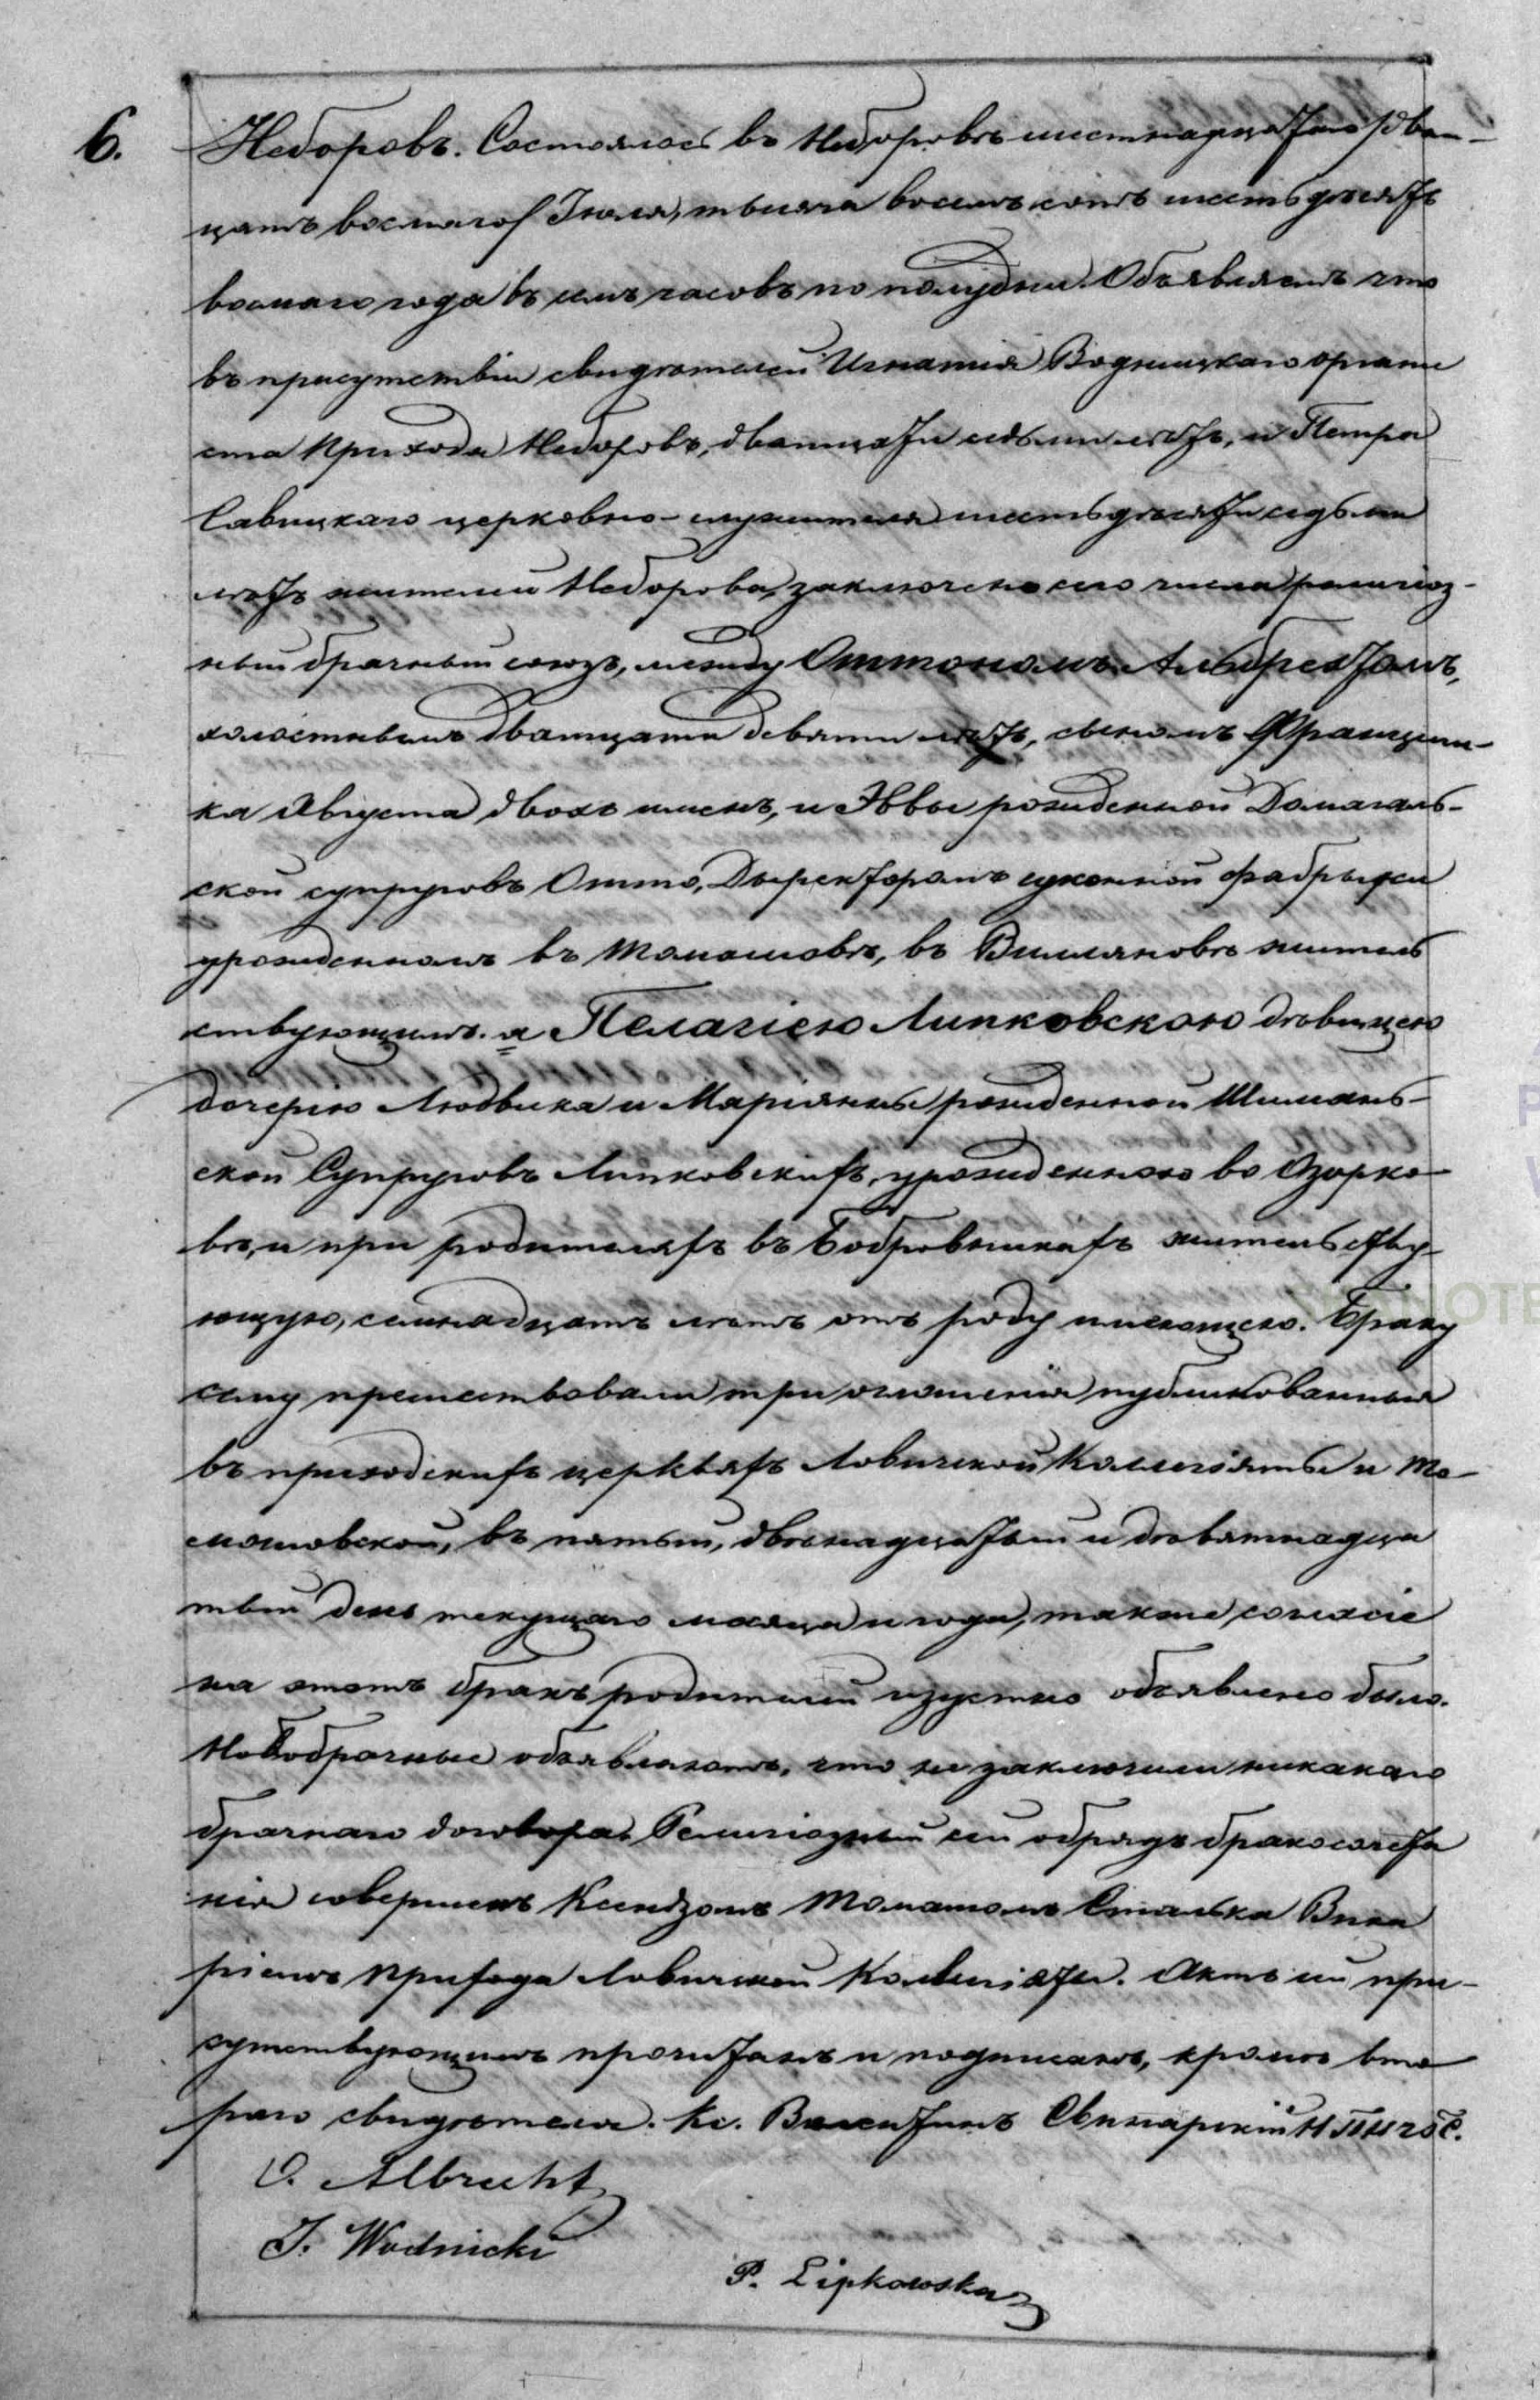 6.
Неборовъ. Состоялось въ Неборовѣ шестнадцатаго /два-
цать восмаго/ Іюля, тысяча восемь сотъ шестьдесятъ
восмаго года въ часовъ по полудни. Объявляемъ что
въ присутствіи свидѣтелей Игнатія Водницкаго органи
ста прихода Неборовъ, дватцати седьми лѣтъ, и Петра
Савицкаго церковно-служителя шестьдесяти седьми
лѣтъ жителей Неборова, заключено сего числа религіоз-
ный брачный союзъ, между Оттономъ Альбрехтомъ,
холостымъ дватцати девяти лѣтъ, сыномъ Францыш-
ка Августа двохъ именъ, и Эввы рожденной Домагаль-
ской супруговъ Отто, Дыректоромъ суконной фабрыки
урожденномъ въ Томашовѣ, въ Вилляновѣ житель
ствующимъ. а Пелагіею Липковскою дѣвицею
дочерію Людвика и Маріянны рожденной Шимань-
ской Супруговъ Липковскихъ, урожденною во Озорко-
вѣ, и при родителяхъ въ Бобровникахъ жительству-
ющую, семнадцать лѣтъ отъ роду имеющею. Браку
сему предшествовали три оглошенія публикованныя
въ приходскихъ церквяхъ Ловичской Коллегіяты и То-
мошовской, въ пятый, двѣнадцатый и дѣвятнадца
тый день текущаго мѣсяца и года, также согласіе
на этотъ бракъ родителей изустно объявлено было.
Новобрачные объявляютъ, что не заключили никакаго
брачнаго договора. Религіозный сей обрядъ бракосочета
нія совершенъ Ксендзомъ Томашомъ Сталька Вика
ріемъ прихода Ловичской Коллегіяты. Актъ сей при-
сутствующимъ прочитанъ и подписанъ, кромѣ вто
раго свидѣтеля. Кс. Валентинъ Свинарскій
O. Albrecht
J. Wodnicki
P. Lipkowska